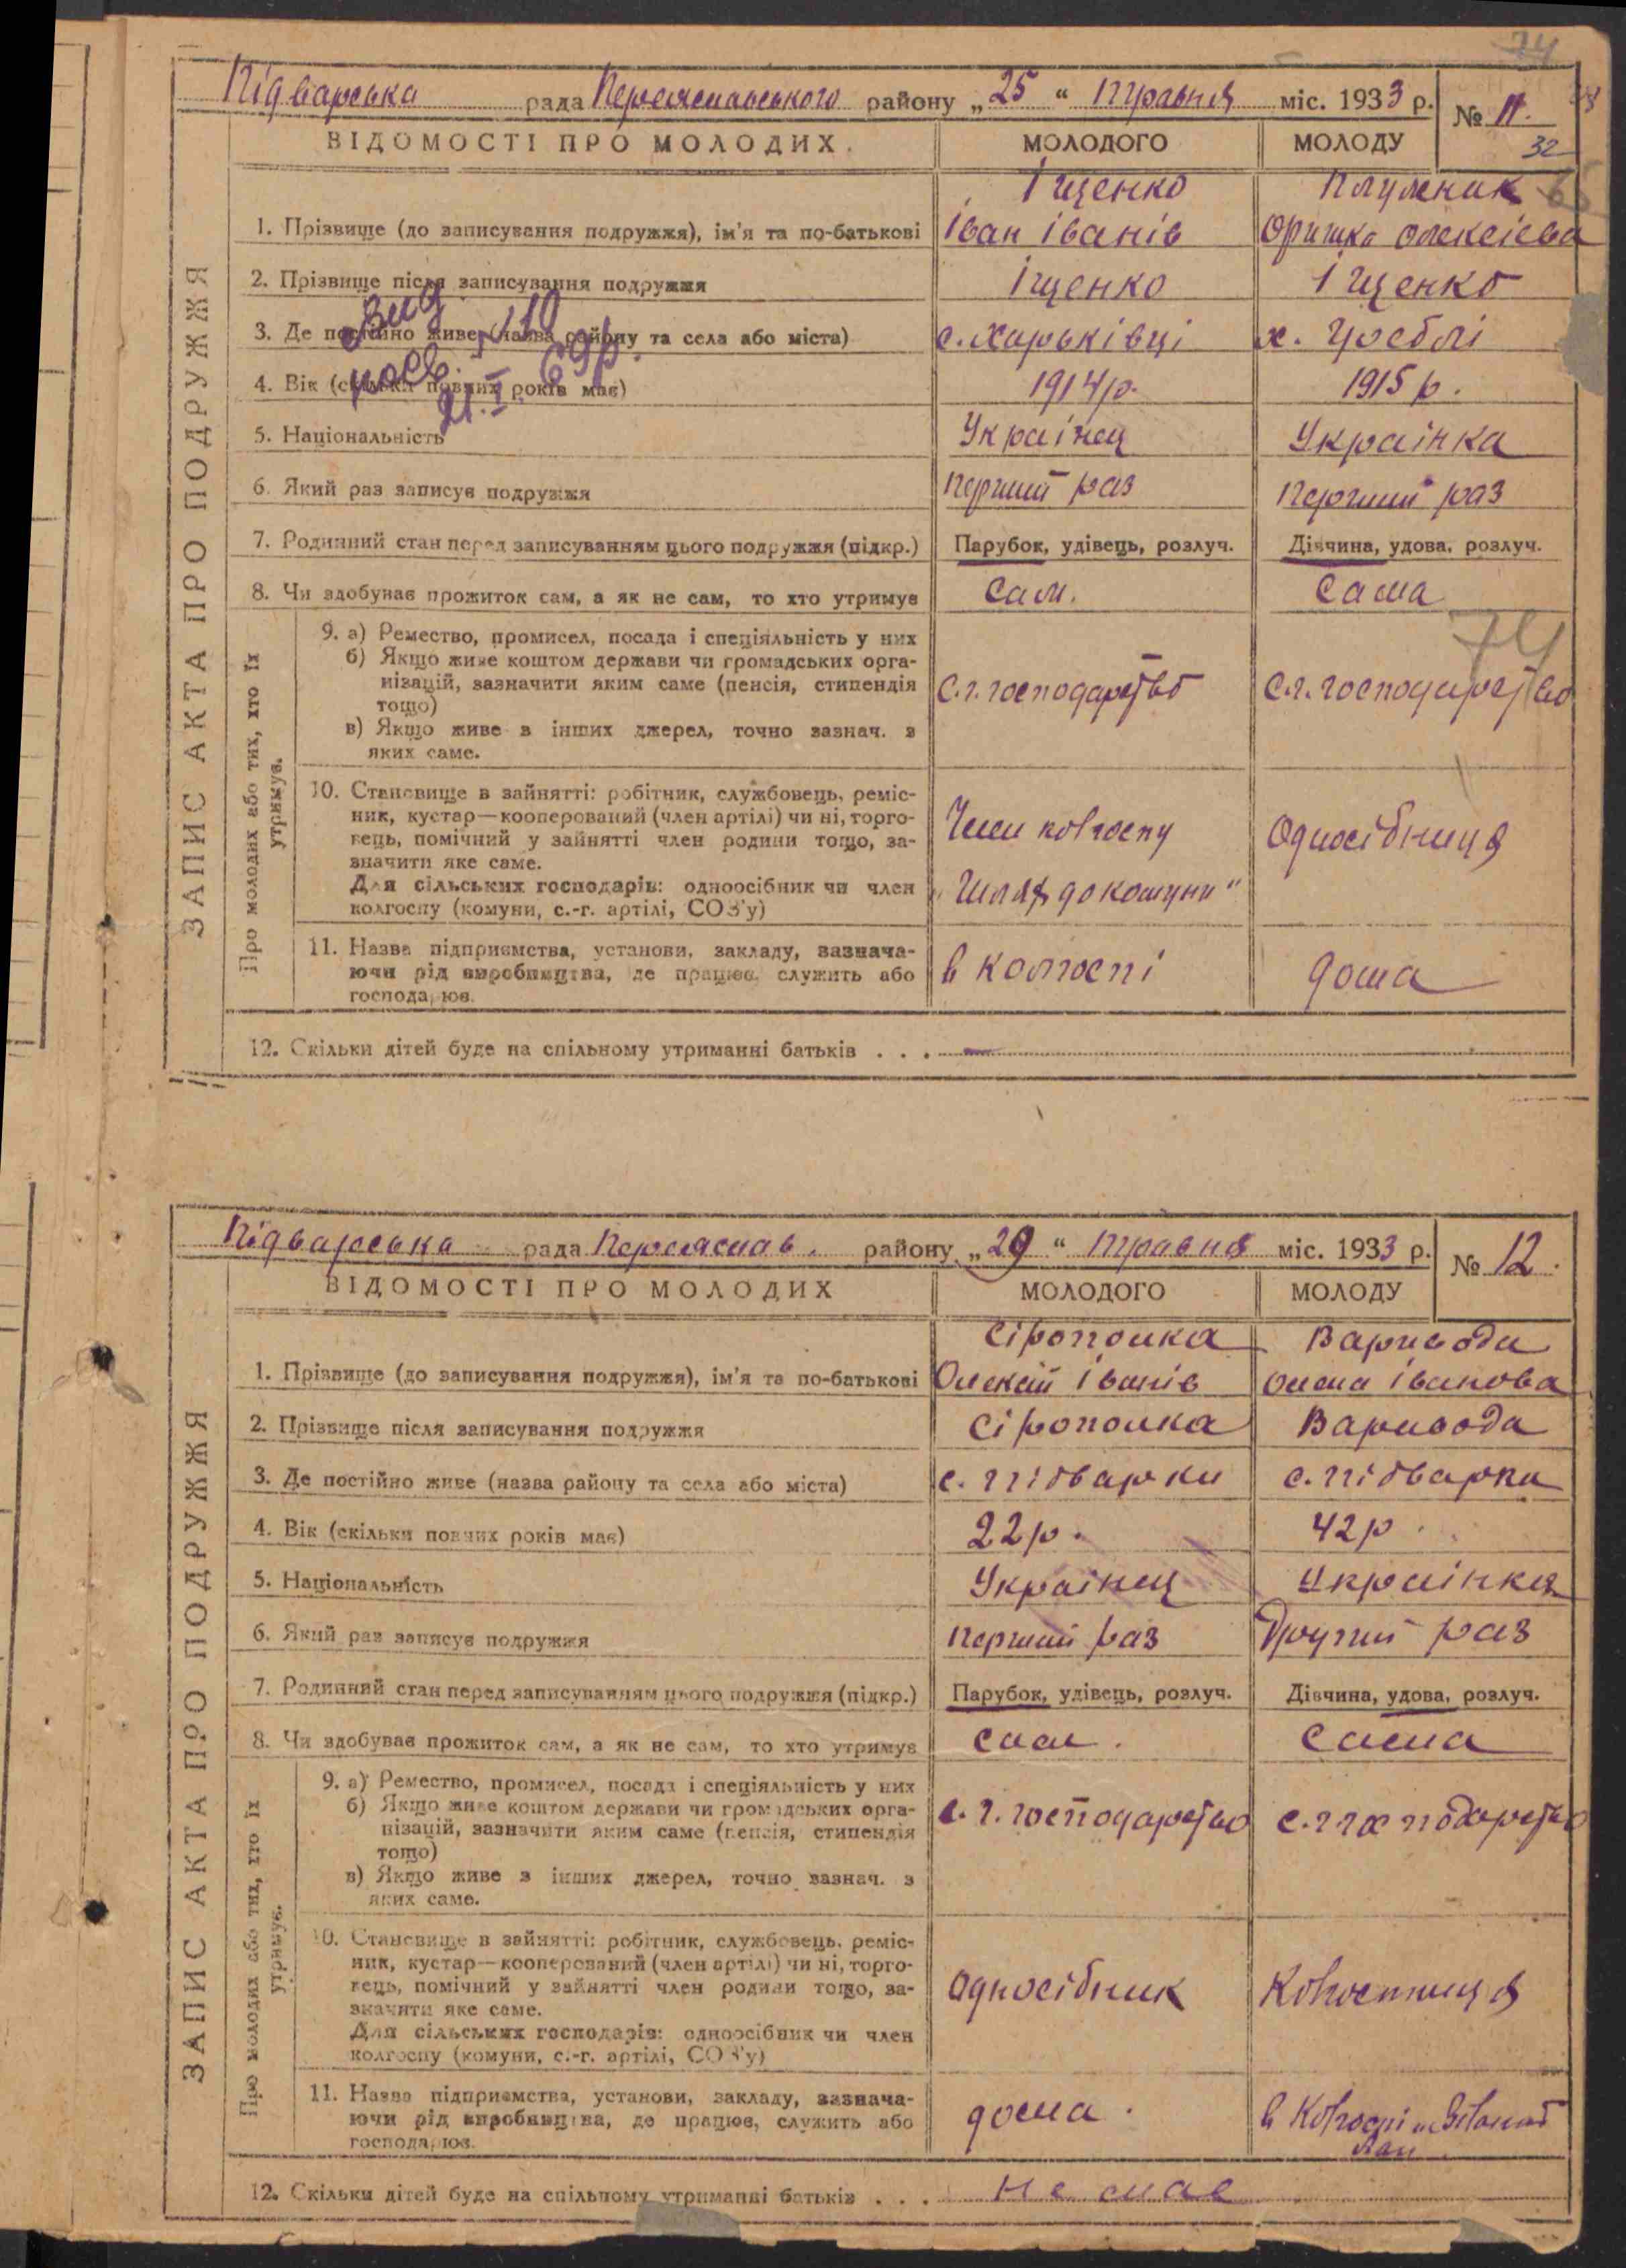 74
Підварська рада Переяславського району „25“ травня міс. 1933 р. № 11.
32
ВІДОМОСТІ ПРО МОЛОДИХ. МОЛОДОГО МОЛОДУ
Іщенко Плужник
1. Прізвище (до записування подружжя), ім'я та по-батькові Іван Іванів Оришка Олексієва
2. Прізвище після записування подружжя Іщенко Іщенко
3. Де постійно живе (назва району та села або міста) с. Харьківці х. Греблі
4. Вік (скільки повних років має) 1914р. 1915р.
Вид. посв. №10
21.I. 69р.
5. Національність Українец Українка
6. Який раз записує подружжя перший раз перший раз
7. Родинний стан перед записуванням цього подружжя (підкр.) Парубок, удівець, розлуч. Дівчина, удова, розлуч.
8. Чи здобував прожиток сам, а як не сам, то хто утримує Сам. Сама
74
ЗАПИС АКТА ПРО ПОДРУЖЖЯ
Про молодих або тих, хто їх утримує.
9. а) Ремество, промисел, посада і спеціяльність у них
б) Якщо живе коштом держави чи громадських орга-
нізацій, зазначити яким саме (пенсія, стипендія
тощо)
в) Якщо живе з інших джерел, точно зазнач. з
яких саме.
с.г. господарство с.г. господарство
10. Становище в зайнятті: робітник, службовець, реміс-
ник, кустар—кооперований (член артілі) чи ні, торго-
вець, помічний у зайнятті член родини тощо, за-
значити яке саме.
Для сільських господарів: одноосібник чи член
колгоспу (комуни, с.-г. артілі, СОЗ'у)
Член колгоспу Односібниця
„Шлях до комуни“
11. Назва підприємства, установи, закладу, зазнача-
ючи рід виробництва, де працює, служить або
господарює.
в колгоспі дома
12. Скільки дітей буде на спільному утриманні батьків . . . —
Підварська рада Переяслав. району „29“ травня міс. 1933 р. № 12.
ВІДОМОСТІ ПРО МОЛОДИХ МОЛОДОГО МОЛОДУ
Сірополка Варивода
1. Прізвище (до записування подружжя), ім'я та по-батькові Олексій Іванів Олена Іванова
2. Прізвище після записування подружжя Сірополка Варивода
3. Де постійно живе (назва району та села або міста) с. Підварки с. Підварки
4. Вік (скільки повних років має) 22р. 42р.
5. Національність Українец Українка
6. Який раз записує подружжя перший раз Другий раз
7. Родинний стан перед записуванням цього подружжя (підкр.) Парубок, удівець, розлуч. Дівчина, удова, розлуч.
8. Чи здобував прожиток сам, а як не сам, то хто утримує сам. сама
ЗАПИС АКТА ПРО ПОДРУЖЖЯ
Про молодих або тих, хто їх утримує.
9. а) Ремество, промисел, посада і спеціяльність у них
б) Якщо живе коштом держави чи громадських орга-
нізацій, зазначити яким саме (пенсія, стипендія
тощо)
в) Якщо живе з інших джерел, точно зазнач. з
яких саме.
с. г. господарство с. г господарство
10. Становище в зайнятті: робітник, службовець, реміс-
ник, кустар—кооперований (член артілі) чи ні, торго-
вець, помічний у зайнятті член родини тощо, за-
значити яке саме.
Для сільських господарів: одноосібник чи член
колгоспу (комуни, с.-г. артілі, СОЗ'у)
Односібник Ковгоспниця
11. Назва підприємства, установи, закладу, зазнача-
ючи рід виробництва, де працює, служить або
господарює.
дома. в Ковгоспі
лан
12. Скільки дітей буде на спільному утриманні батьків . . . не має